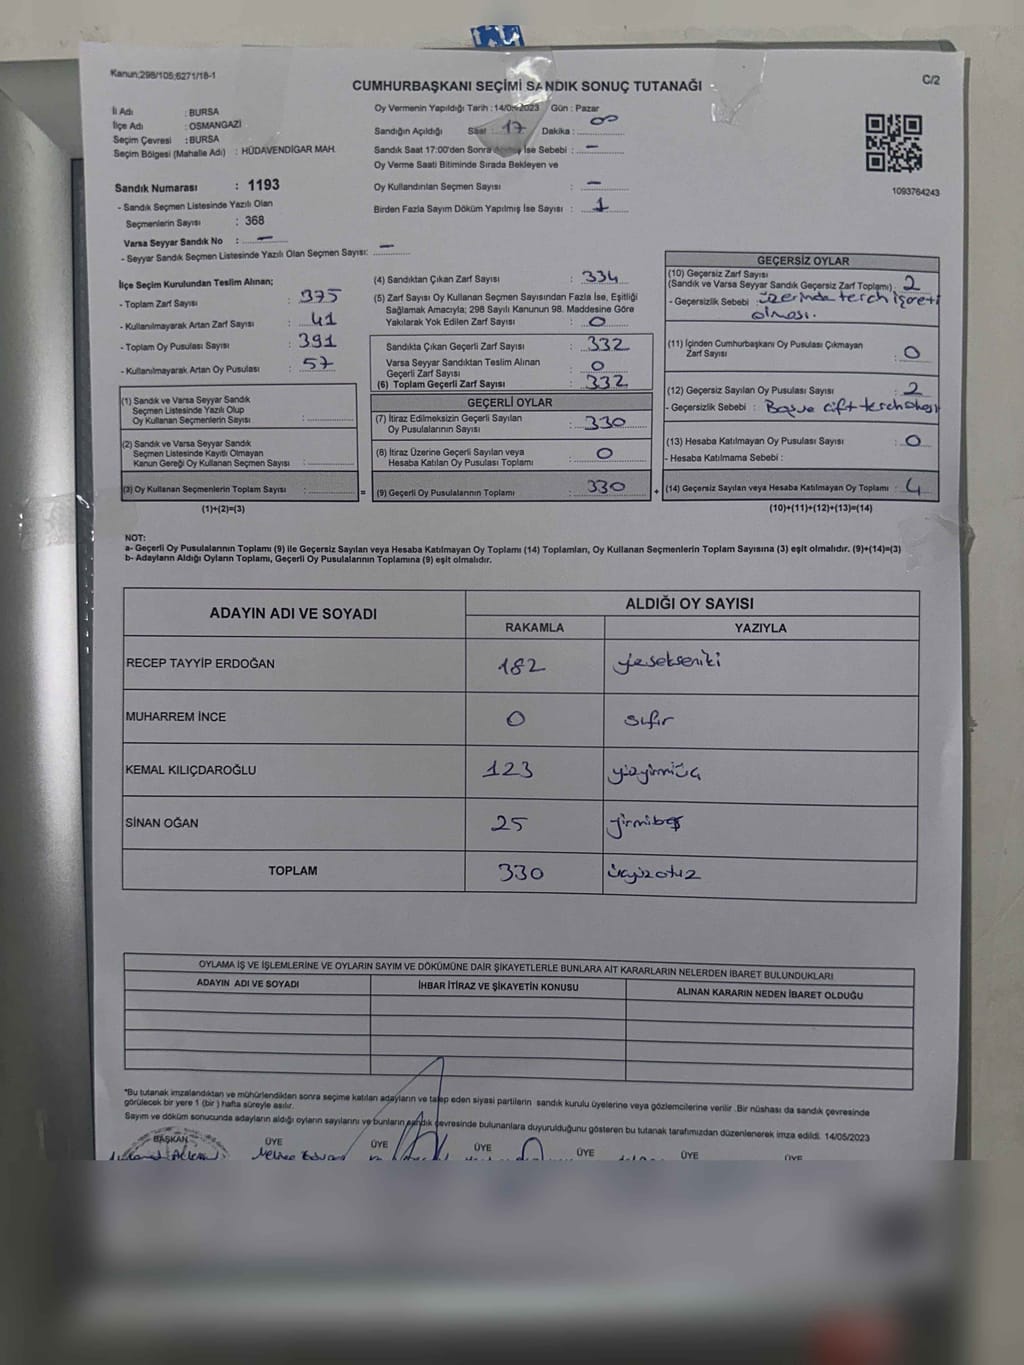 Kanun;298/105;6271/18-1
C/2
CUMHURBAŞKANI SEÇİMİ SANDIK SONUÇ TUTANAĞI
İli Adı : BURSA
İlçe Adı : OSMANGAZİ
Seçim Çevresi : BURSA
Seçim Bölgesi (Mahalle Adı) : HÜDAVENDİGAR MAH.
Sandık Numarası : 1193
- Sandık Seçmen Listesinde Yazılı Olan
Seçmenlerin Sayısı : 368
Varsa Seyyar Sandık No : —
- Seyyar Sandık Seçmen Listesinde Yazılı Olan Seçmen Sayısı: —
Oy Vermenin Yapıldığı Tarih : 14/05/2023 Gün : Pazar
Sandığın Açıldığı Saat : 17 Dakika : 00
Sandık Saat 17:00'den Sonra Açılmış İse Sebebi : —
Oy Verme Saati Bitiminde Sırada Bekleyen ve
Oy Kullandırılan Seçmen Sayısı : —
Birden Fazla Sayım Döküm Yapılmış İse Sayısı : 1
1093764243
İlçe Seçim Kurulundan Teslim Alınan;
- Toplam Zarf Sayısı : 375
- Kullanılmayarak Artan Zarf Sayısı : 41
- Toplam Oy Pusulası Sayısı : 391
- Kullanılmayarak Artan Oy Pusulası : 57
(1) Sandık ve Varsa Seyyar Sandık
Seçmen Listesinde Yazılı Olup
Oy Kullanan Seçmenlerin Sayısı :
(2) Sandık ve Varsa Seyyar Sandık
Seçmen Listesinde Kayıtlı Olmayan
Kanun Gereği Oy Kullanan Seçmen Sayısı :
(3) Oy Kullanan Seçmenlerin Toplam Sayısı :
(1)+(2)=(3)
(4) Sandıktan Çıkan Zarf Sayısı : 334
(5) Zarf Sayısı Oy Kullanan Seçmen Sayısından Fazla İse, Eşitliği
Sağlamak Amacıyla; 298 Sayılı Kanunun 98. Maddesine Göre
Yakılarak Yok Edilen Zarf Sayısı : 0
Sandıkta Çıkan Geçerli Zarf Sayısı : 332
Varsa Seyyar Sandıktan Teslim Alınan
Geçerli Zarf Sayısı : 0
(6) Toplam Geçerli Zarf Sayısı : 332
GEÇERLİ OYLAR
(7) İtiraz Edilmeksizin Geçerli Sayılan
Oy Pusulalarının Sayısı : 330
(8) İtiraz Üzerine Geçerli Sayılan veya
Hesaba Katılan Oy Pusulası Toplamı : 0
= (9) Geçerli Oy Pusulalarının Toplamı : 330
GEÇERSİZ OYLAR
(10) Geçersiz Zarf Sayısı
(Sandık ve Varsa Seyyar Sandık Geçersiz Zarf Toplamı) : 2
- Geçersizlik Sebebi : üzerinde tercih işareti
olması.
(11) İçinden Cumhurbaşkanı Oy Pusulası Çıkmayan
Zarf Sayısı : 0
(12) Geçersiz Sayılan Oy Pusulası Sayısı : 2
- Geçersizlik Sebebi : Boş ve çift tercih olması
(13) Hesaba Katılmayan Oy Pusulası Sayısı : 0
- Hesaba Katılmama Sebebi :
+ (14) Geçersiz Sayılan veya Hesaba Katılmayan Oy Toplamı : 4
(10)+(11)+(12)+(13)=(14)
NOT:
a- Geçerli Oy Pusulalarının Toplamı (9) ile Geçersiz Sayılan veya Hesaba Katılmayan Oy Toplamı (14) Toplamları, Oy Kullanan Seçmenlerin Toplam Sayısına (3) eşit olmalıdır. (9)+(14)=(3)
b- Adayların Aldığı Oyların Toplamı, Geçerli Oy Pusulalarının Toplamına (9) eşit olmalıdır.
ADAYIN ADI VE SOYADI
ALDIĞI OY SAYISI
RAKAMLA YAZIYLA
RECEP TAYYİP ERDOĞAN 182 yüzsekseniki
MUHARREM İNCE 0 sıfır
KEMAL KILIÇDAROĞLU 123 yüzyirmiüç
SİNAN OĞAN 25 yirmibeş
TOPLAM 330 üçyüzotuz
OYLAMA İŞ VE İŞLEMLERİNE VE OYLARIN SAYIM VE DÖKÜMÜNE DAİR ŞİKAYETLERLE BUNLARA AİT KARARLARIN NELERDEN İBARET BULUNDUKLARI
ADAYIN ADI VE SOYADI İHBAR İTİRAZ VE ŞİKAYETİN KONUSU ALINAN KARARIN NEDEN İBARET OLDUĞU
*Bu tutanak imzalandıktan ve mühürlendikten sonra seçime katılan adayların ve talep eden siyasi partilerin sandık kurulu üyelerine veya gözlemcilerine verilir .Bir nüshası da sandık çevresinde
görülecek bir yere 1 (bir ) hafta süreyle asılır.
Sayım ve döküm sonucunda adayların aldığı oyların sayılarını ve bunların sandık çevresinde bulunanlara duyurulduğunu gösteren bu tutanak tarafımızdan düzenlenerek imza edildi. 14/05/2023
BAŞKAN ÜYE ÜYE ÜYE ÜYE ÜYE ÜYE